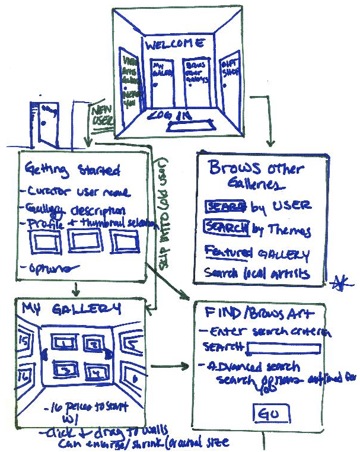 WELCOME
MY
GALLERY
BROWS
OTHER
GALLERYS
GIFT
SHOP
LOG IN
NEW
USER
Getting Started
- Curator user name
- Gallery description
- Profile + thumbnail selection
SKIP INTRO (OLD USER)
BROWS OTHER
Galleries
SEARCH by USER
SEARCH by Themes
Featured GALLERY
Search local artists
MY GALLERY
15
1
2
5
16
3
4
6
- 16 pieces to start
W/
- Click + drag to walls
Can enlarge/shrink size
FIND/Brows Art
- Enter search criteria
SEARCH
- Advanced search
search options for
you
GO